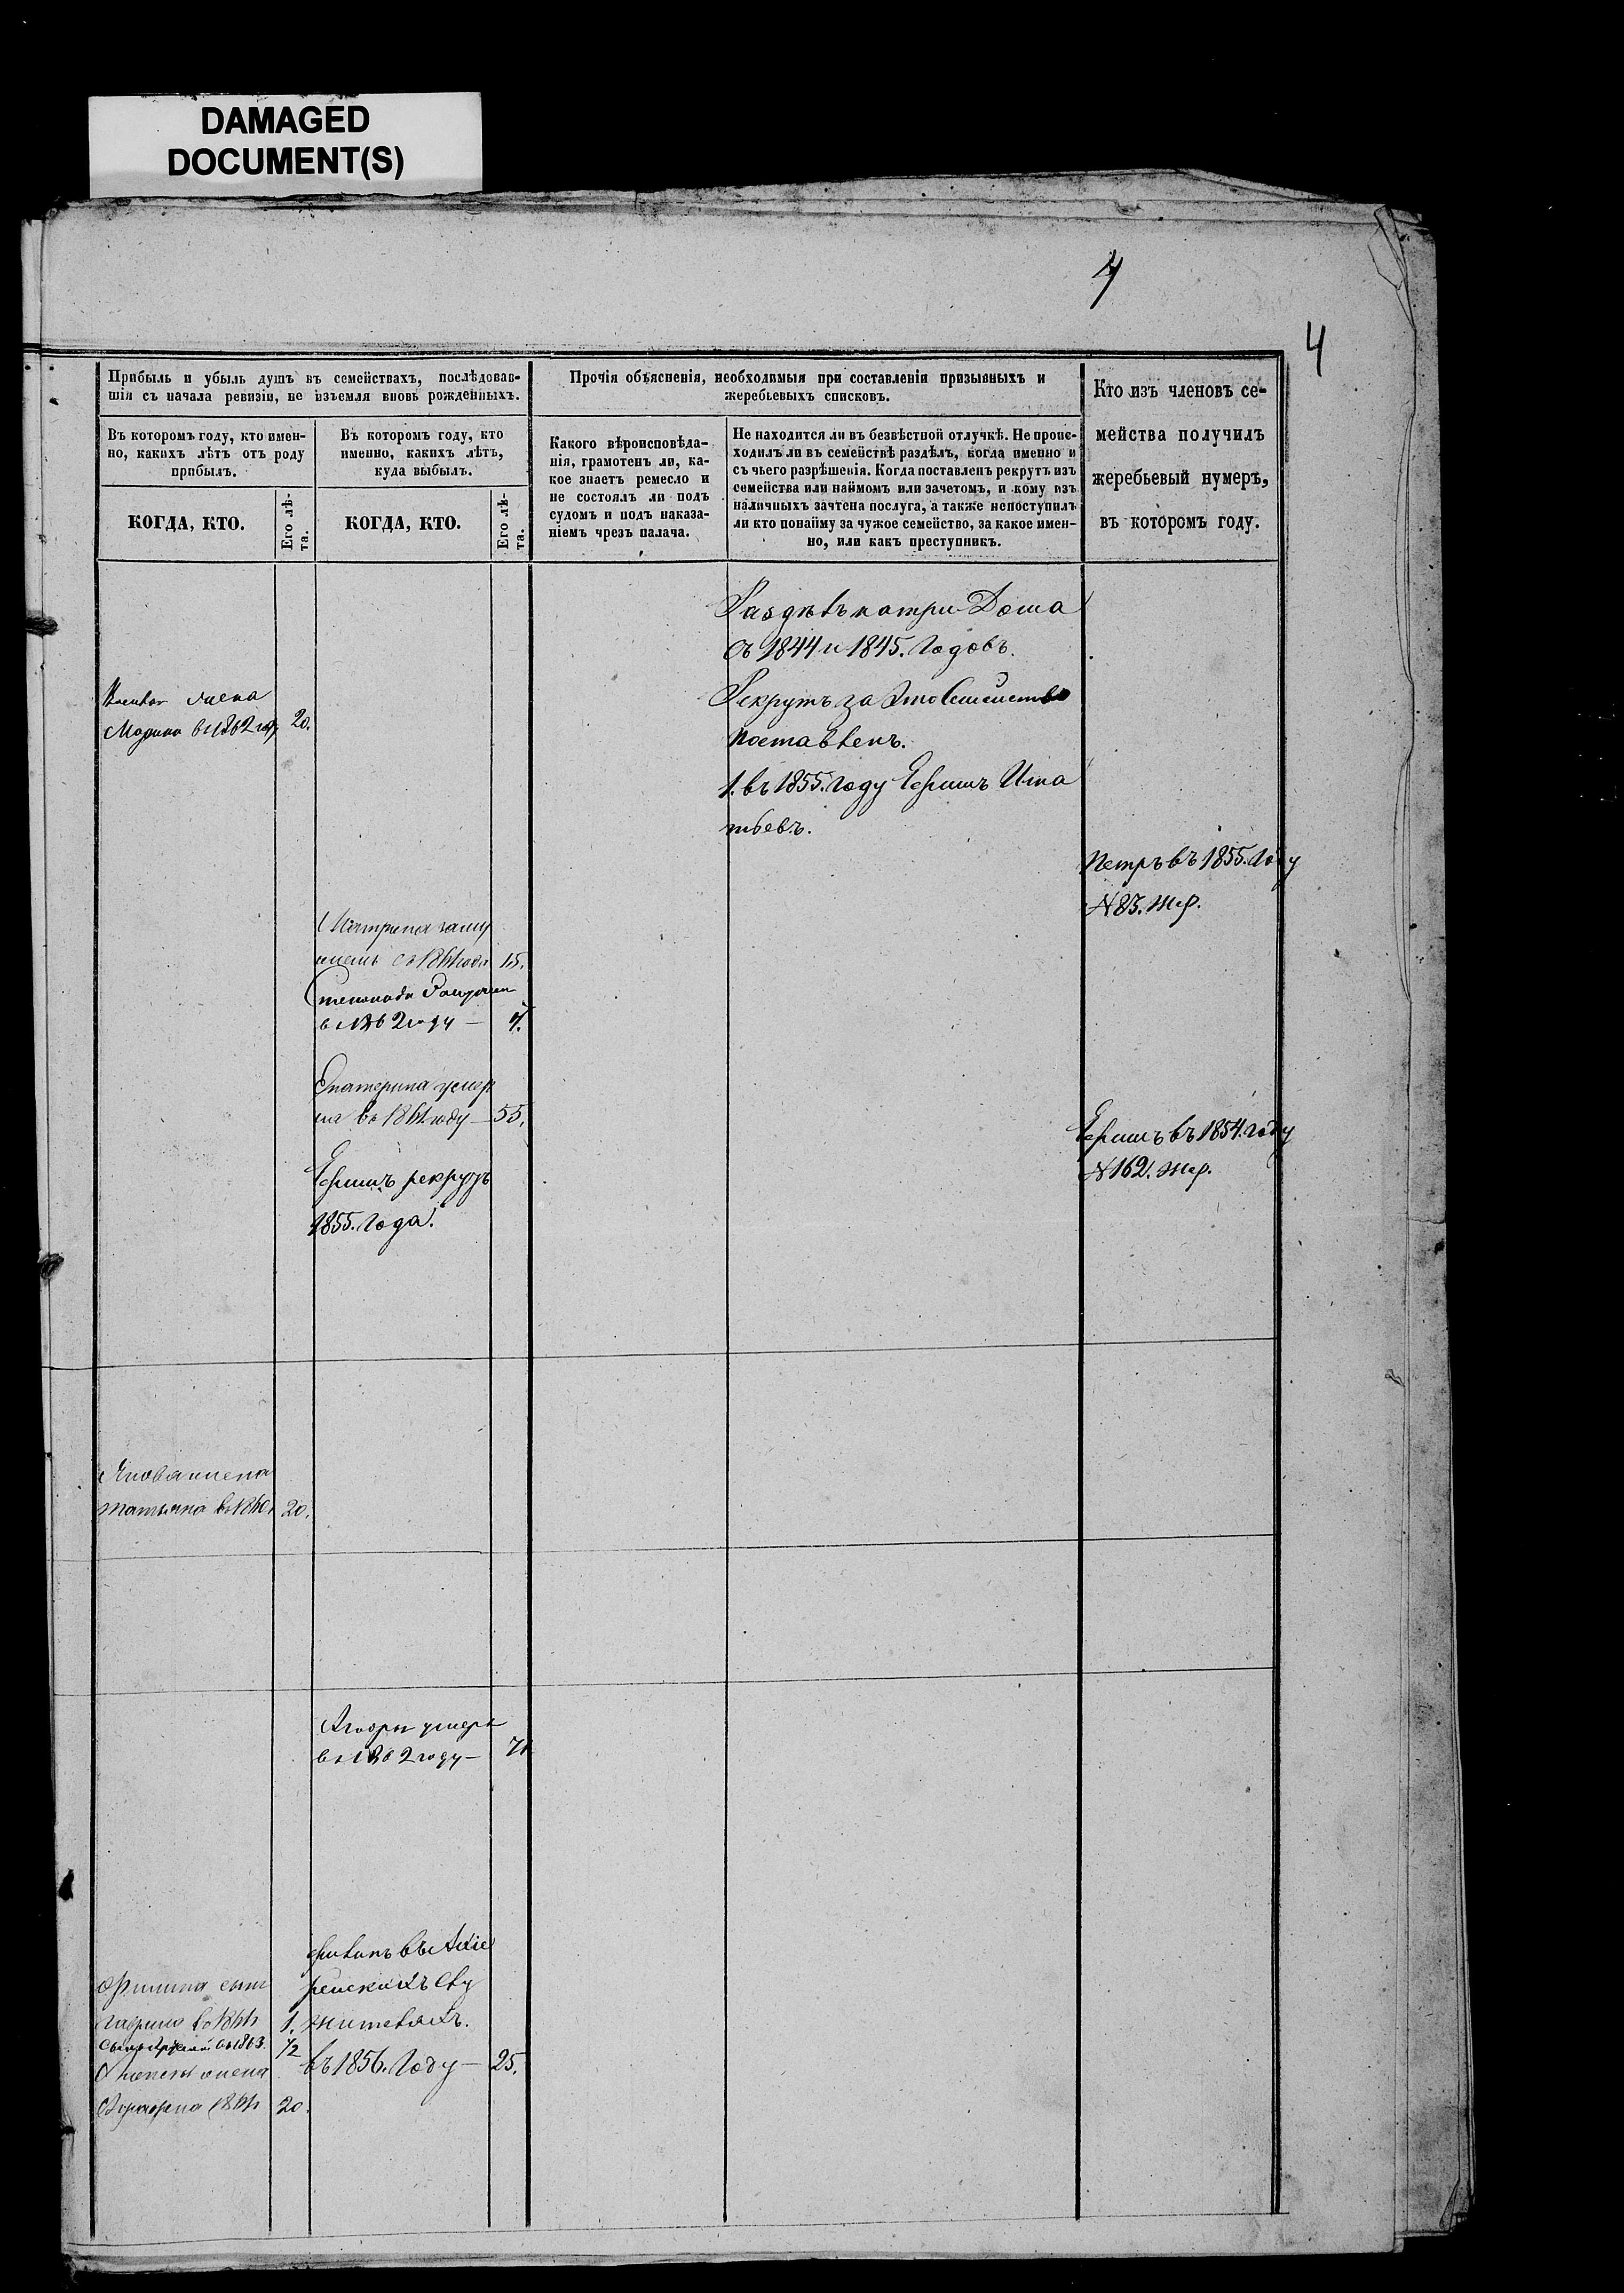 DAMAGED
DOCUMENT(S)
4
4
Прибыль и убыль душъ въ семействахъ, послѣдовав-
шія съ начала ревизіи, не изъемля вновь рожденныхъ.
Прочія объясненія, необходимыя при составленіи призывныхъ и
жеребьевыхъ списковъ.
Кто изъ членовъ се-
мейства получилъ
жеребьевый нумеръ,
въ которомъ году.
Въ которомъ году, кто имен-
но, какихъ лѣтъ отъ роду
прибылъ.
Въ которомъ году, кто
именно, какихъ лѣтъ,
куда выбылъ.
Какого вѣроисповѣда-
нія, грамотенъ ли, ка-
кое знаетъ ремесло и
не состоялъ ли подъ
судомъ и подъ наказа-
ніемъ чрезъ палача.
Не находится ли въ безвѣстной отлучкѣ. Не проис-
ходилъ ли въ семействѣ раздѣлъ, когда именно и
съ чьего разрѣшенія. Когда поставленъ рекрутъ изъ
семейства или наймомъ или зачетомъ, и кому изъ
наличныхъ зачтена послуга, а также непоступилъ
ли кто понайму за чужое семейство, за какое имен-
но, или какъ преступникъ.
КОГДА, КТО.
Его лѣ-
та.
КОГДА, КТО.
Его лѣ-
та.
Раздѣлъ на три Дома
съ 1844 и 1845. Годовъ.
Рекрутъ за Это Семейство
поставленъ.
1. въ 1855. Году Ефимъ Игна
тьевъ.
жена
Марина въ 1862 году 20.
Петръ въ 1855. Году
N 83. жер.
Матрена заму
жемъ съ 1861 года 15.
въ 1862 году — 7.
Екатерина умер
ла въ 1861 году — 55.
Ефимъ въ 1854. году
N 162. жер.
Ефимъ рекрутъ
1855. Года.
жена
Татьяна въ 20.
умеръ
въ 1862 году — 71
Филипъ въ Архіе
рейскихъ Слу
жителяхъ.
въ 1856. Году — 25.
сынъ
1.
1/2
жена
20.